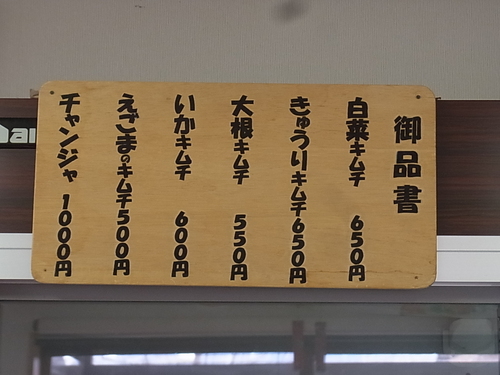 御品書
白菜キムチ 650円
きゅうりキムチ650円
大根キムチ 550円
いかキムチ 600円
えごまのキムチ500円
チャンジャ 1000円